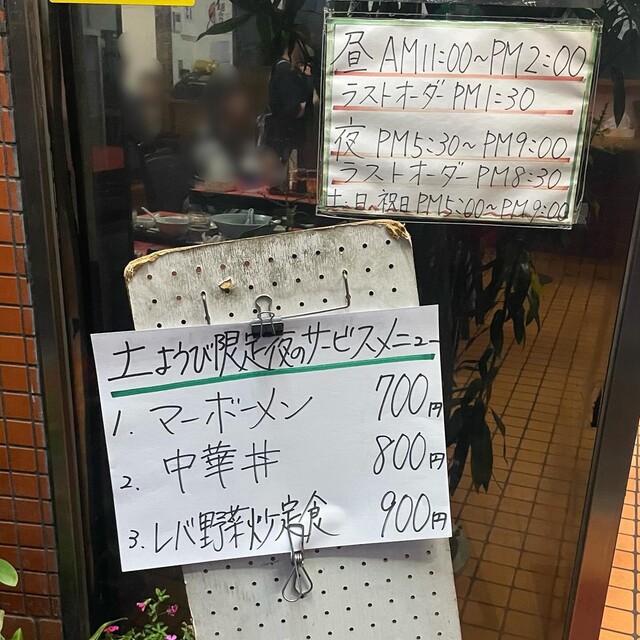 昼 AM11:00~PM2:00
ラストオーダーPM1:30
夜 PM5:30~PM9:00
ラストオーダーPM8:30
土・日・祝日PM5:00~PM9:00
土ようび限定夜のサービスメニュー
1. マーボーメン 700円
2. 中華丼 800円
3. レバ野菜炒定食 900円